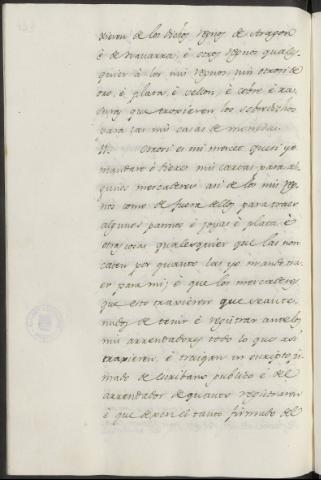 xieren de los dichos Regnos de Aragon
è de Navarra, è otros Regnos quales
quier à los mis Regnos, nin otrosi de
oro, è plata, è vellon, è cobre è ra
suras que troxieren los sobredichos
para las mis casas de monedas.
Otrosi es mi merced que si yo
mandare ò diere mis cartas para al
gunos mercaderes asi de los mis Reg
nos como de fuera dellos para traer
algunos pannos è joyas è plata, è
otras cosas qualesquier que las non
caten por quanto las yo mando tra
er para mi; è que los mercaderes
que esto traxieren que sean te
nudos de venir è registrar ante los
mis arrendadores todo lo que asi
traxieren, è traigan un escripto fir
mado de Escribano publico è del
arrendador de quanto registraren
è que dexen el tanto firmado del